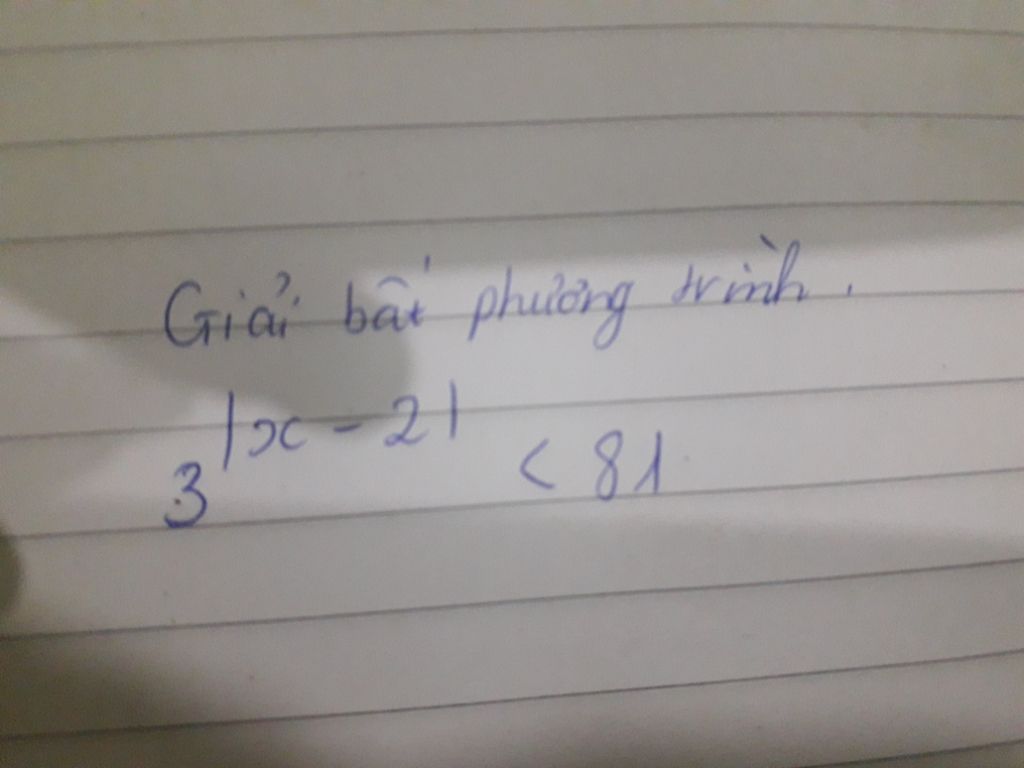 Giải bất phương trình.
3^|x-2| < 81